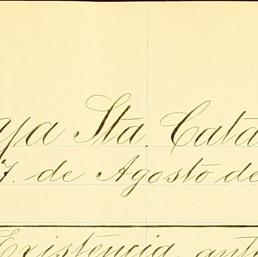 ya Sta. Cata
7. de Agosto de
Existencia ant